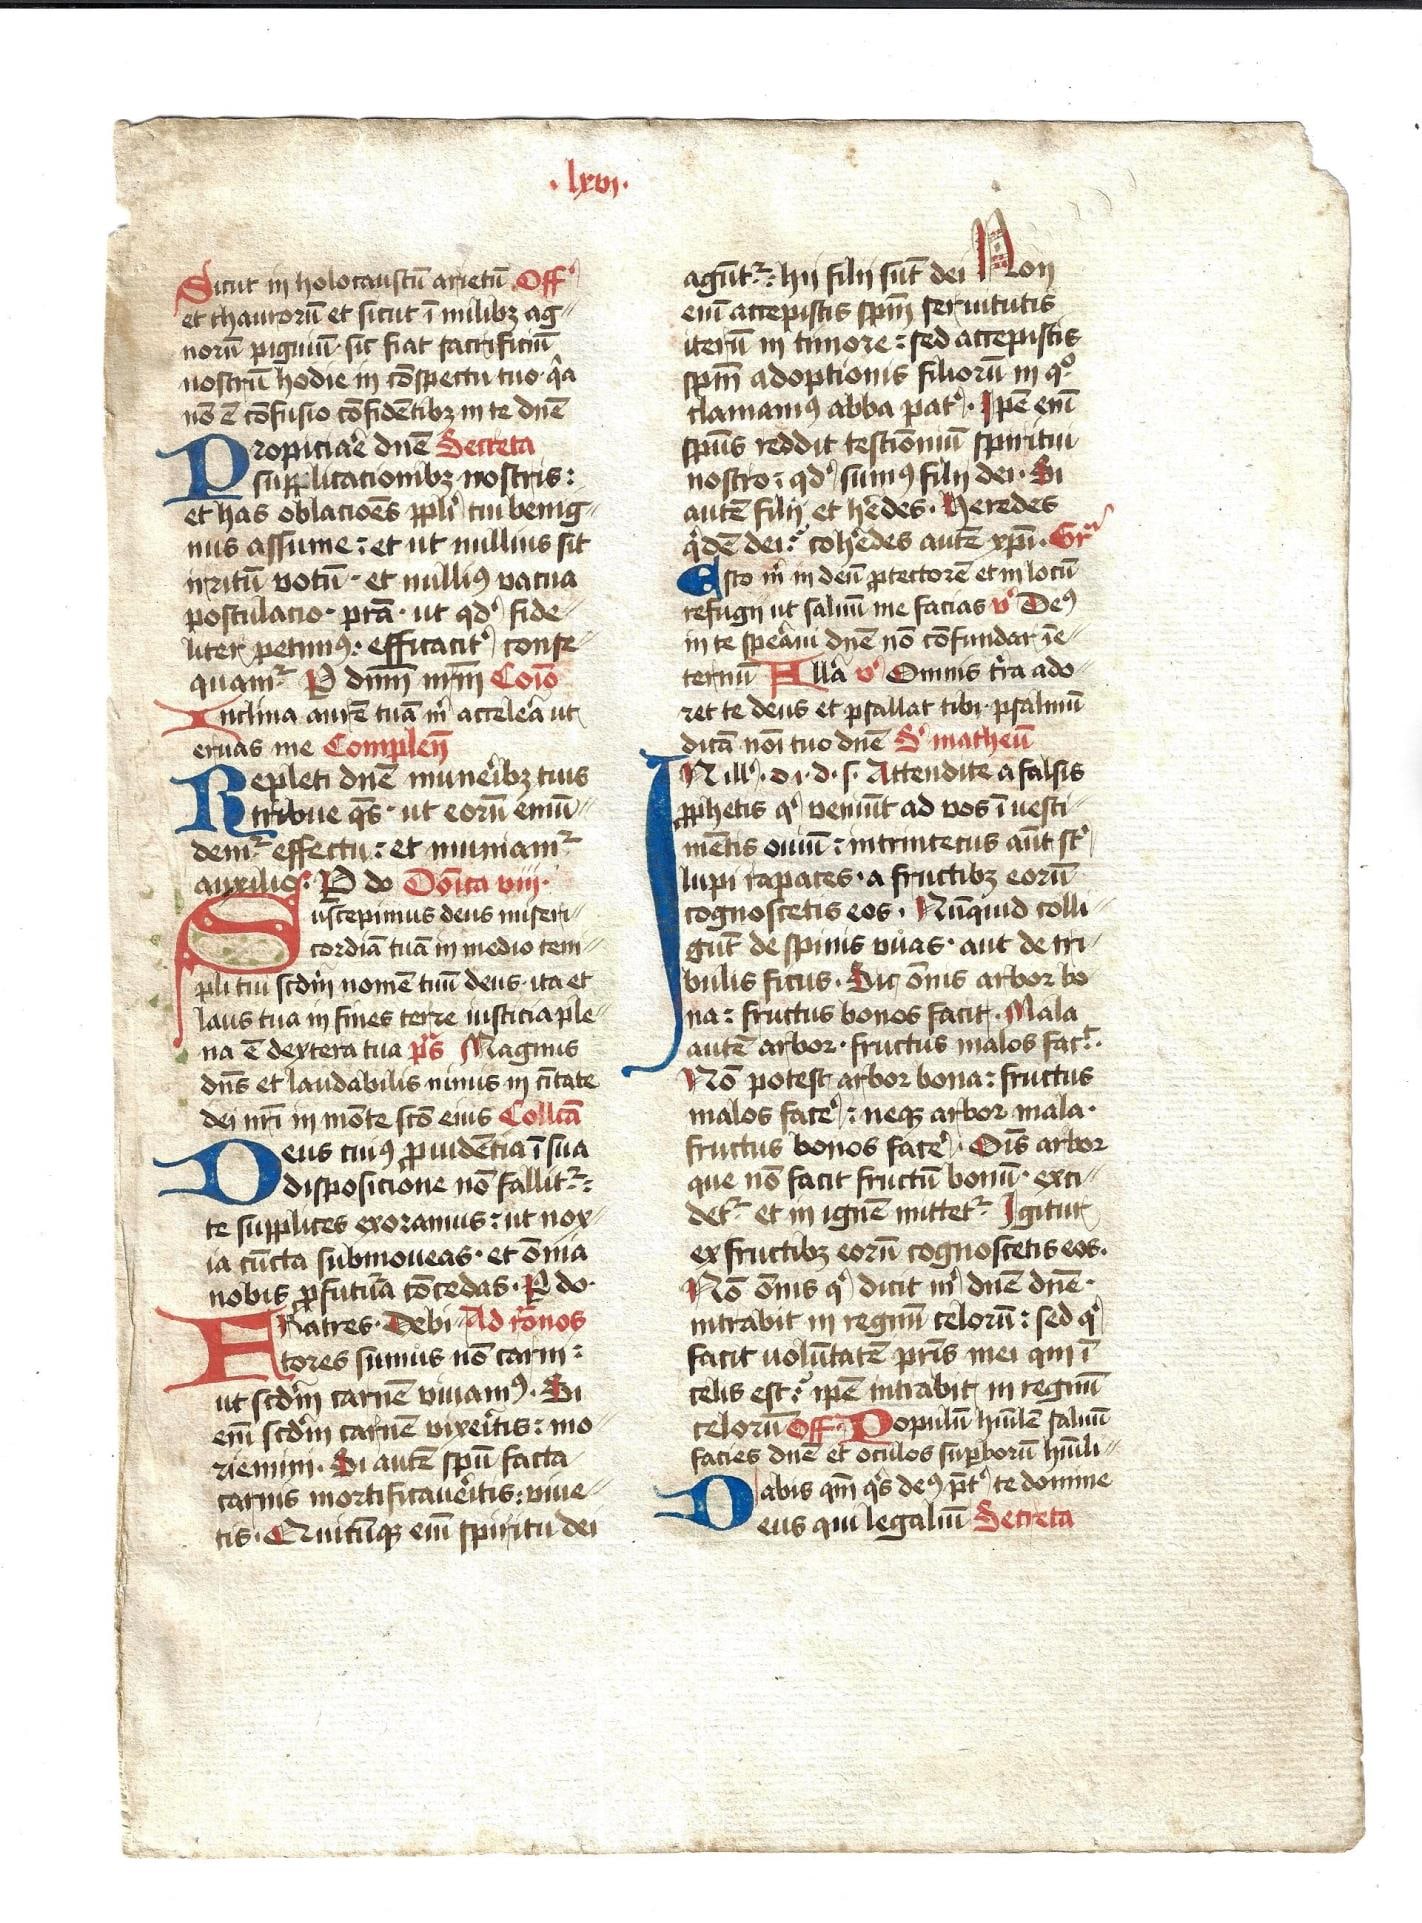 .lxvi.
Sicut in holocaustū arietū Off'
et thaurorū et sicut ī milibꝫ ag⸗
norū pīguiū· sic fiat sacrificiū
nostrū hodie in cōspectu tuo· qͥa
nō ē cōfusio cōfidētibꝫ in te dn̄e
Propiciaꝰe dn̄e Secreta
supplicacionibꝫ nostris:
et has oblacioēs ꝓpl'i tui benig⸗
nus assume: et ut nullius sit
irritū votū· et nulliꝰ vacua
postulacio· pr̄a· ut qd' fide⸗
liter petimꝰ: efficacit' conse⸗
quamᷣ P dn̄m nr̄m Coīo
Inclina aurē tuā m' acceleᷓa ut
eruas me Complen̄
Repleti dn̄e muneᷣibꝫ tuis
tribue q̄s· ut eorū emū⸗
demᷣ effectu: et muniamᷣ
auxilio: P do Dōica viij·
Suscepimus deus miseri⸗
cordiā tuā in medio tem⸗
pli tui scd̄m nomē tuū deus· ita et
laus tua in fines terre iusticia ple⸗
na ē dextera tua p̄s Magnus
dn̄s et laudabilis nimis in cītate
dei nr̄i in mōte scō eius Collcā
Deus cuiꝰ ꝓuidēcia ī sua
disposicione nō fallitᷣ:
te supplices exoramus: ut nox⸗
ia cūcta submoueas· et ōmīa
nobis ꝓfutuᷓa cōcedas· P do·
Fratres· Debi⸗ Ad rōnos
tores sumus nō carni:
ut scd̄m carnē viuamꝰ. Si
em̄ scd̄m carnē vixeᷣitis: mo⸗
riemini. Si autē sp̄u facta
carnis mortificaueᷣitis: viue⸗
tis. Quicūqꝫ em̄ spiritu dei
agūtᷣ: hii filij sūt dei Non
em̄ accepistis sp̄m seruitutis
iterū in timore: sed accepistis
sp̄m adoptionis filiorū in qͦ
clamamꝰ abba pat'. Ipē em̄
sp̄us reddit testiōnium spiritui
nostro: qd' sumꝰ filij dei. Si
autē filij et h'edes. Heredes
qͥdē dei: coh'edes autē xp̄i. Gr'
Esto m' in deū ꝓtectorē et in locū
refugij ut saluū me facias v' Deꝰ
in te speᷓaui dn̄e nō cōfundar ī e⸗
ternū Allᷓa v' Omnis t'ra ado⸗
ret te deus et psallat tibi· psalmū
dicā nōi tuo dn̄e S' matheū
In ill'. d. i. d. s. Attendite a falsis
ꝓphetis q' veniūt ad vos ī uesti⸗
mētis ouiū: intrinsecus aūt st'
lupi rapaces· a fructibꝫ eorū
cognoscetis eos. Nūquid colli⸗
gūt de spinis vuas· aut de tri⸗
bulis ficus. Sic ōnis arbor bo
na: fructus bonos facit. Mala
autē arbor· fructus malos fac'.
Nō potest arbor bona: fructus
malos face': neqꝫ arbor mala·
fructus bonos face'. Oīs arbor
que nō facit fructū bonū· exci⸗
detᷣ et in ignē mittetᷣ Igitur
ex fructibꝫ eorū cognoscetis eos.
Nō ōnis q' dicit m' dn̄e dn̄e·
intrabit in regnū celorū: sed q'
facit volūtatē pr̄is mei qui ī
celis est: ipē intrabit in regnū
celorū Off. Populū hūilē saluū
facies dn̄e et oculos suꝑborū hūili⸗
abis qm̄ q's deꝰ p̄t' te domine
Deus qui legaliū Secreta